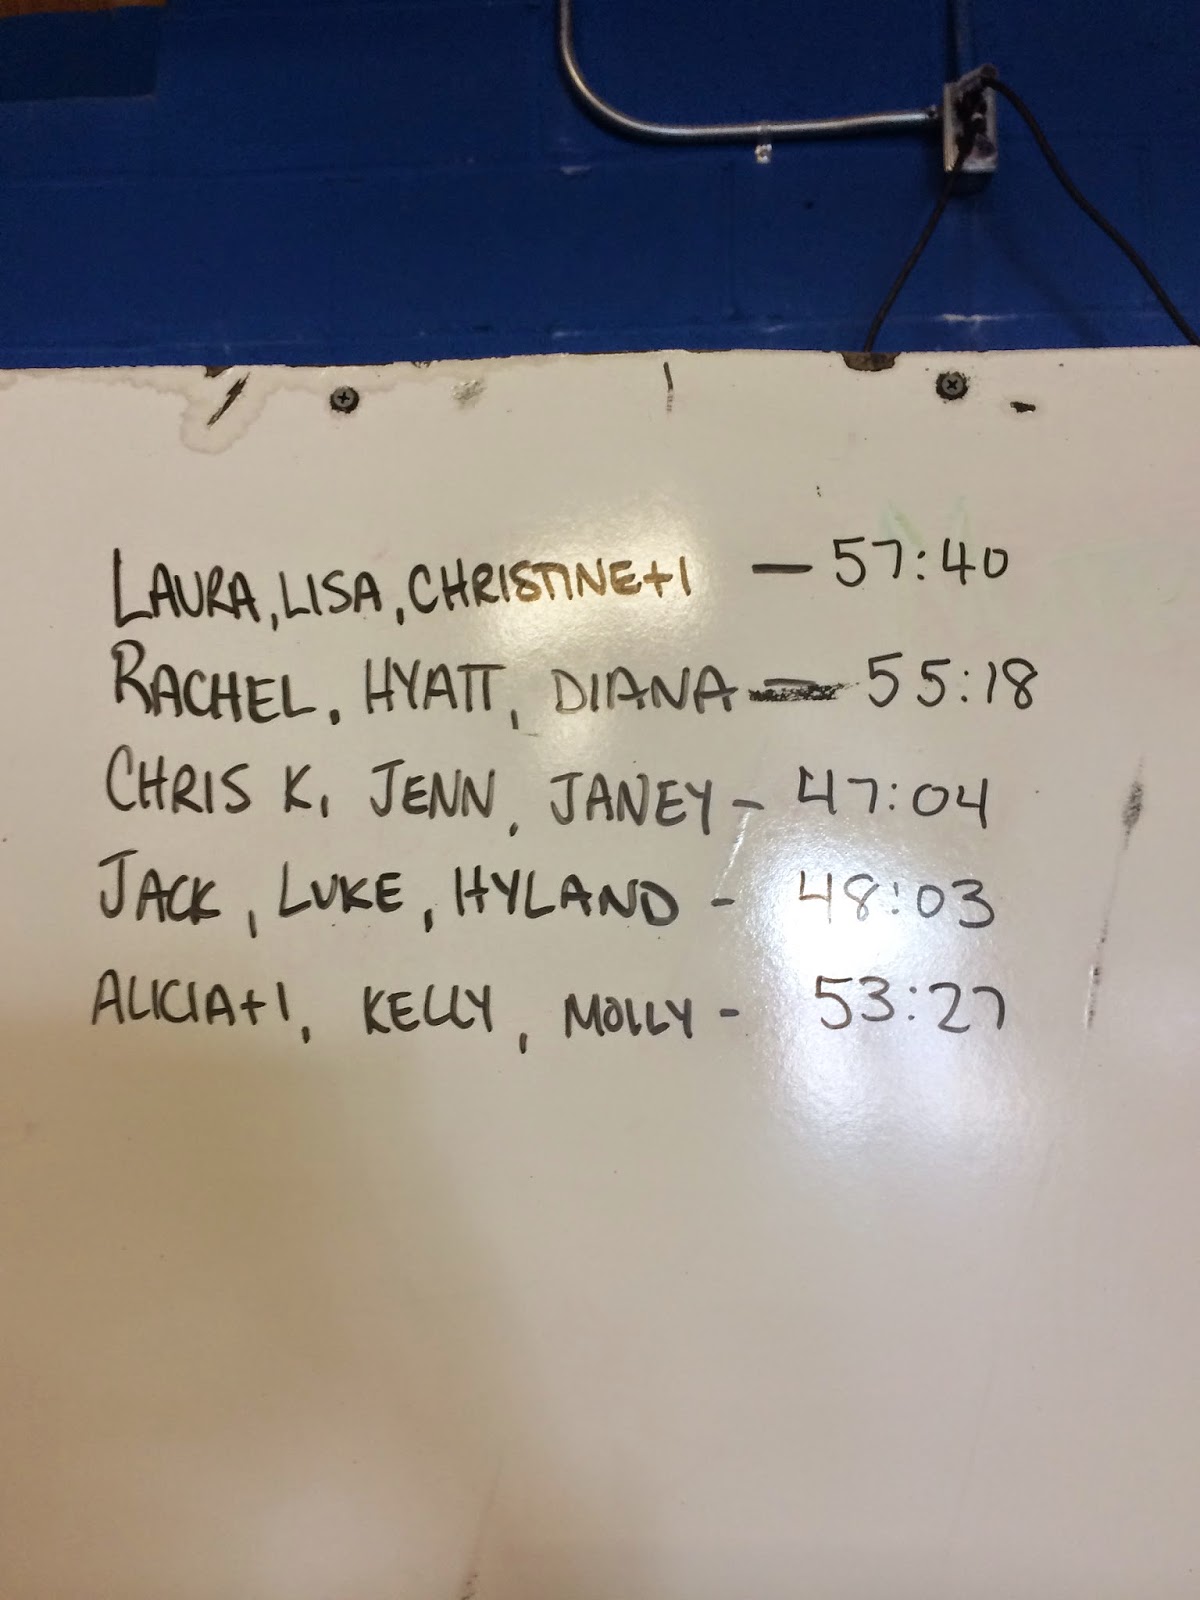 LAURA, LISA, CHRISTINE+1 — 57:40
RACHEL, HYATT, DIANA — 55:18
CHRIS K, JENN, JANEY - 47:04
JACK, LUKE, HYLAND - 48:03
ALICIA+1, KELLY, MOLLY - 53:27